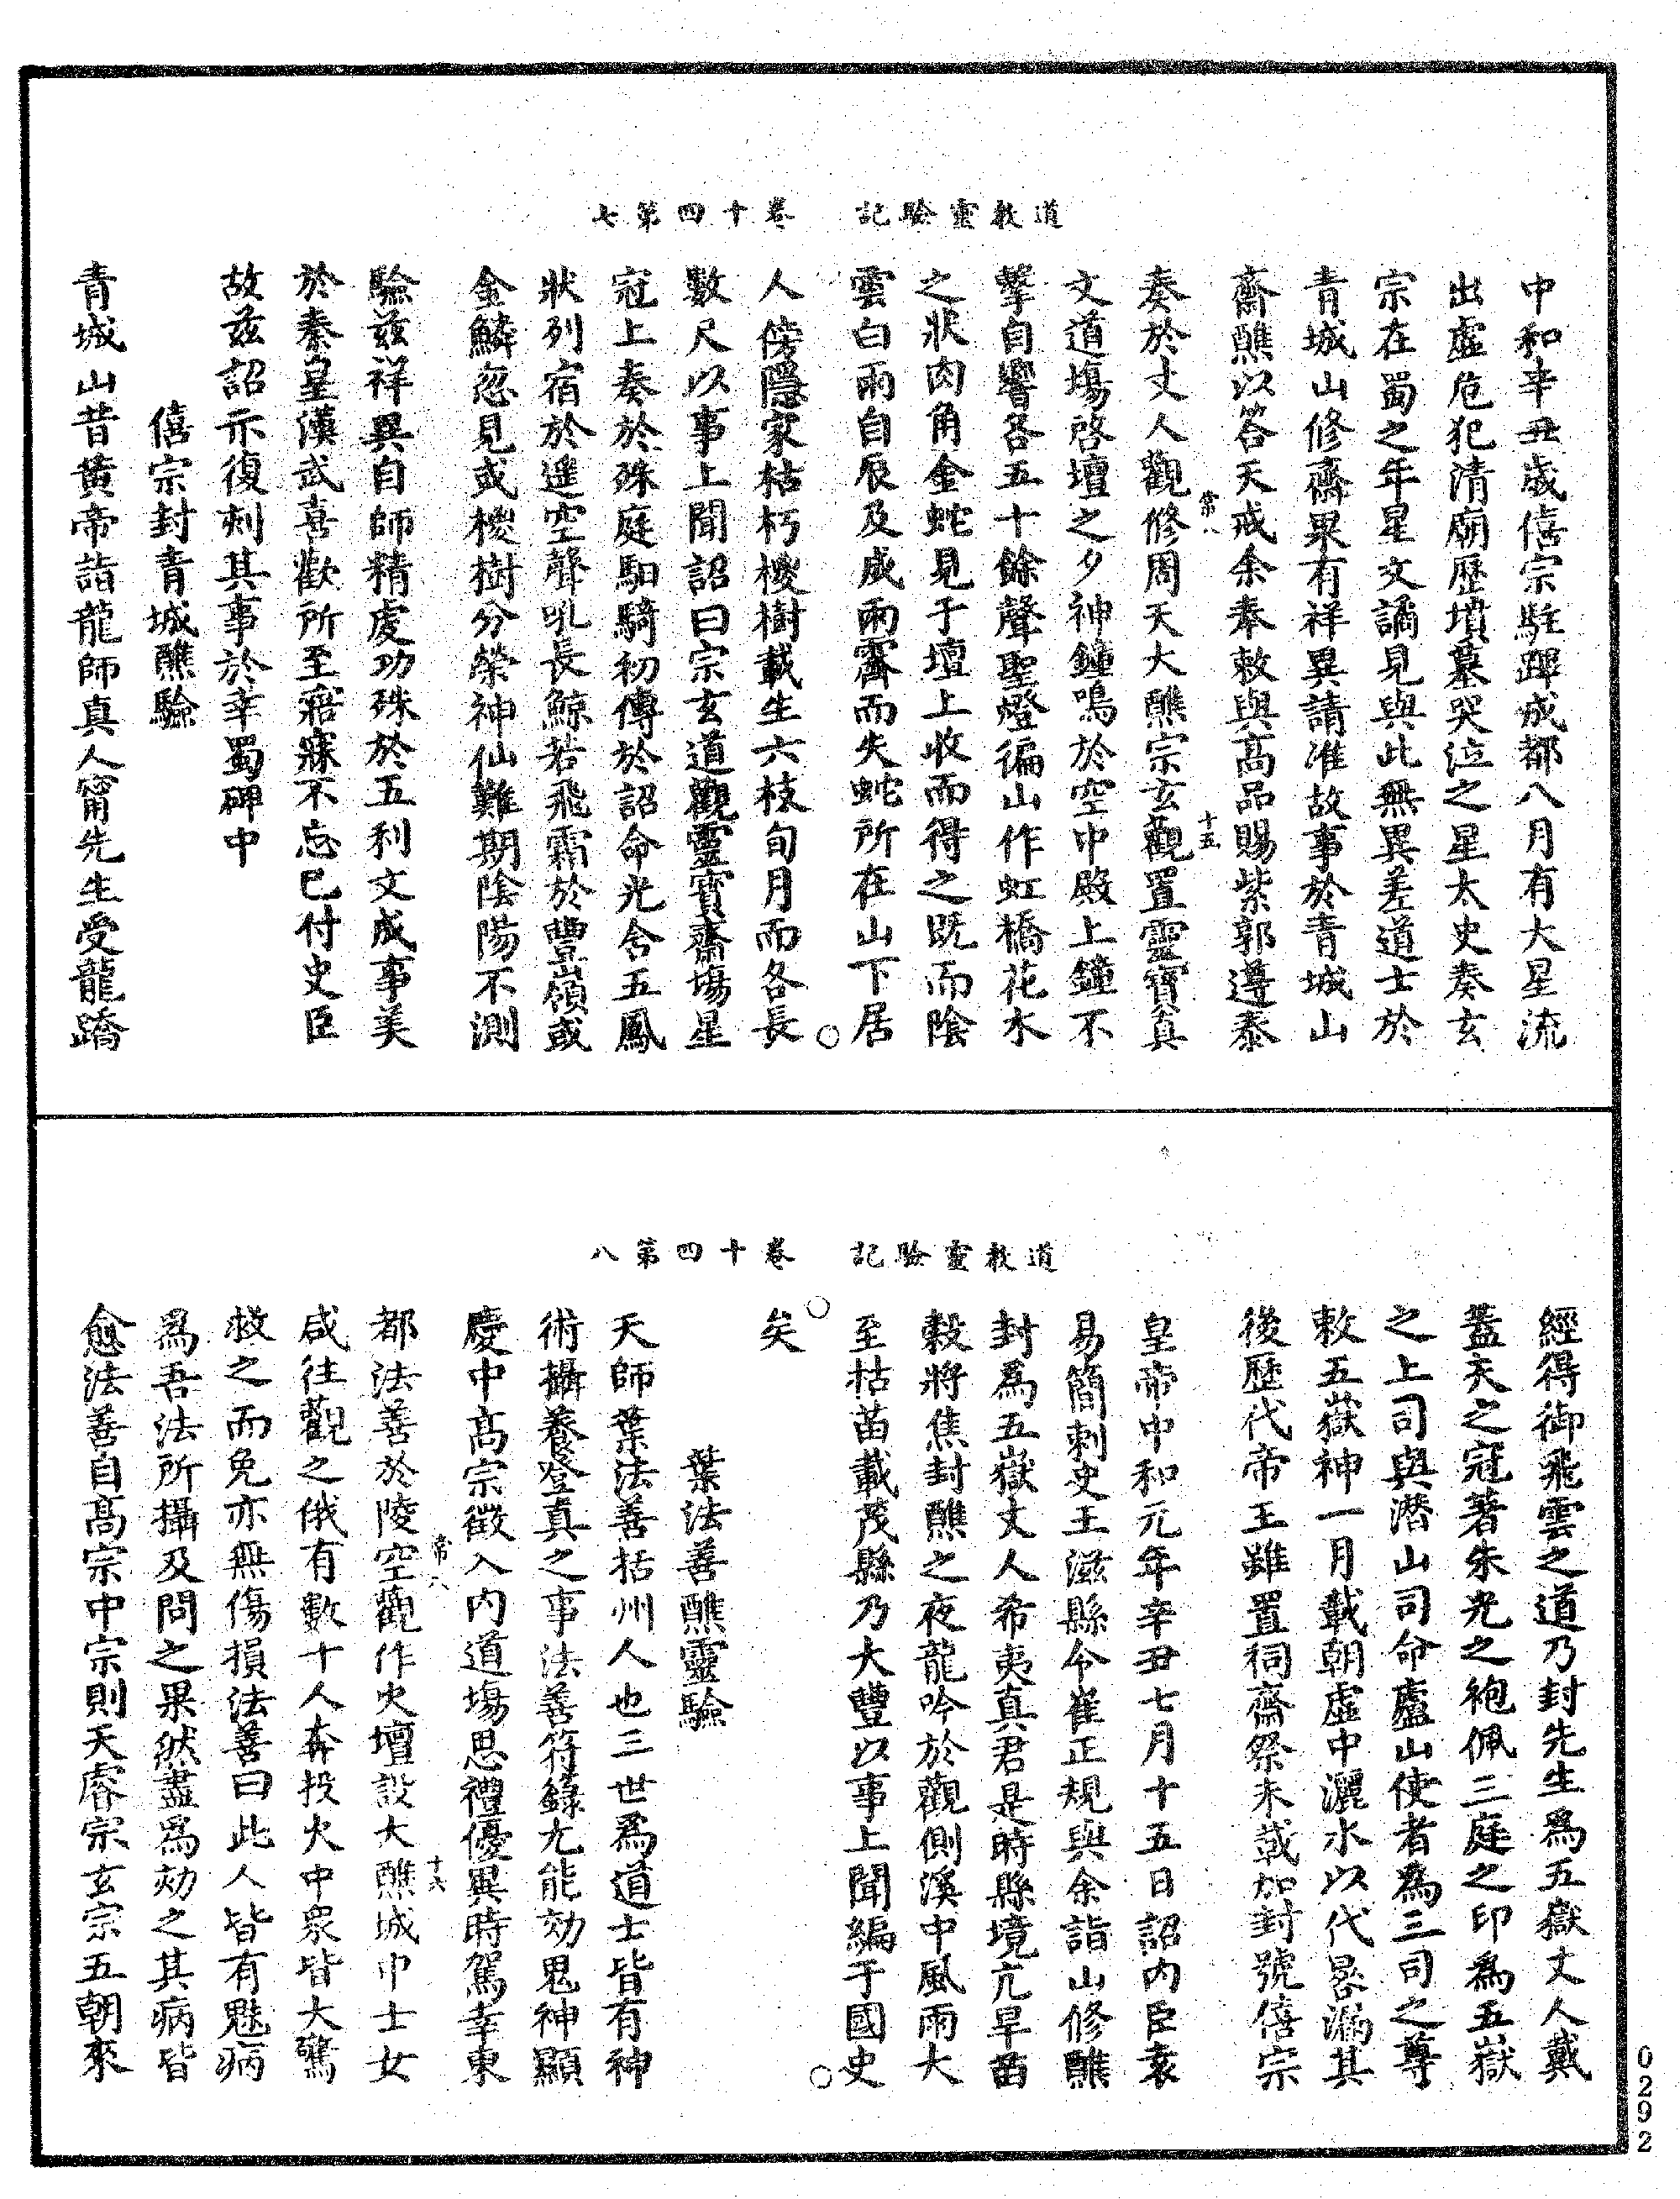 道教靈驗記　卷十四第七
中和辛丑歲僖宗駐蹕成都八月有大星流
出虛危犯清廟歷墳墓哭泣之星太史奏玄
宗在蜀之年星文譎見與此無異差道士於
青城山修齋果有祥異請准故事於青城山
齋醮以答天戒余奉敕與高品賜紫郭遵泰
常八　十五
奏於丈人觀修周天大醮宗玄觀置靈寶真
文道場啓壇之夕神鐘鳴於空中殿上鐘不
擊自響各五十餘聲聖燈徧山作虹橋花木
之狀肉角金蛇見于壇上收而得之既而陰
雲白雨自辰及戌雨霽而失蛇所在山下居
人傍隱家枯朽㮨樹載生六枝旬月而各長
數尺以事上聞詔曰宗玄道觀靈寶齋場星
冠上奏於殊庭馹騎初傳於詔命光含五鳳
狀列宿於遥空聲吼長鯨若飛霜於豐嶺或
金鱗忽見或㮨樹分榮神仙難期陰陽不測
驗兹祥異自師精虔功殊於五利文成事美
於秦皇漢武喜歡所至寤寐不忘已付史臣
故兹詔示復刻其事於幸蜀碑中
僖宗封青城醮驗
青城山昔黃帝詣龍師真人甯先生受龍蹻
道教靈驗記　卷十四第八
經得御飛雲之道乃封先生爲五嶽丈人戴
蓋天之冠著朱光之袍佩三庭之印爲五嶽
之上司與潛山司命廬山使者為三司之尊
敕五嶽神一月載朝虛中灑水以代晷漏其
後歷代帝王雖置祠齋祭未載加封號僖宗
皇帝中和元年辛丑七月十五日詔内臣袁
易簡刺史王滋縣令崔正規與余詣山修醮
封爲五嶽丈人希夷真君是時縣境亢旱苗
穀將焦封醮之夜龍吟於觀側溪中風雨大
至枯苗載茂縣乃大豐以事上聞編于國史
矣
葉法善醮靈驗
天師葉法善括州人也三世爲道士皆有神
術攝養登真之事法善符籙尤能効鬼神顯
慶中高宗徵入内道場思禮優異時駕幸東
常八　十六
都法善於陵空觀作火壇設大醮城中士女
咸往觀之俄有數十人奔投火中衆皆大驚
救之而免亦無傷損法善曰此人皆有魅病
爲吾法所攝及問之果然盡爲劾之其病皆
愈法善自高宗中宗則天睿宗玄宗五朝來
0292